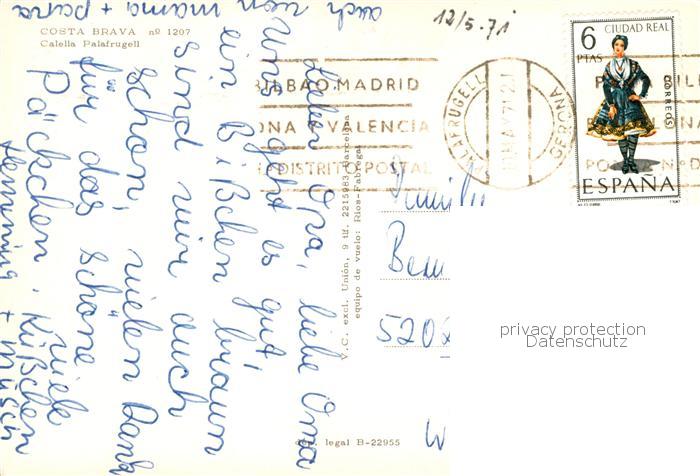 COSTA BRAVA nº 1207
Calella Palafrugell
12/5.71
Lieber Opa, liebe Oma
uns geht es gut,
ein Bißchen braun
sind wir auch
schon, vielen Dank
für das schöne
Päckchen, viele
Küßchen
Henning +
auch von mama + papa
V.C. excl. Unión, 9 tf. 2215983 Barcelona
equipo de vuelo: Rios-Fabregat
dep. legal B-22955
BILBAO-MADRID
ONA Y VALENCIA
DISTRITO POSTAL
PALAFRUGELL
GERONA
6
PTAS
CIUDAD REAL
CORREOS
ESPAÑA
Familie
520
W
privacy protection
Datenschutz